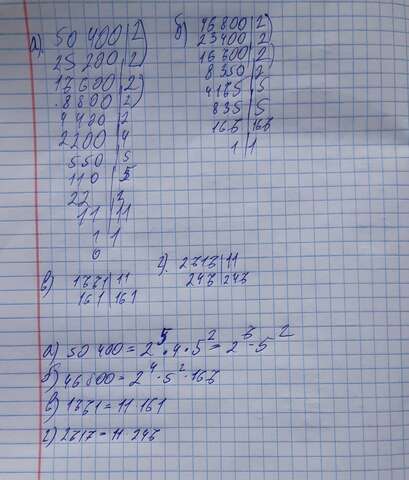 а) 50 400 | 2)
25 200 | 2)
17600 | 2)
8800 | 2)
4400 | 2
2200 | 4
550 | 5
110 | 5
22 | 2
11 | 11
1 | 1
0
б) 46800 | 2)
23400 | 2)
16700 | 2)
8350 | 2
4175 | 5
835 | 5
167 | 167
1 | 1
в) 1771 | 11
161 | 161
г). 2717 | 11
247 | 247
а) 50 400 = 2^5 · 4 · 5^2 = 2^7 · 5^2
б) 46800 = 2^4 · 5^2 · 167
в) 1771 = 11 · 161
г) 2717 = 11 · 247